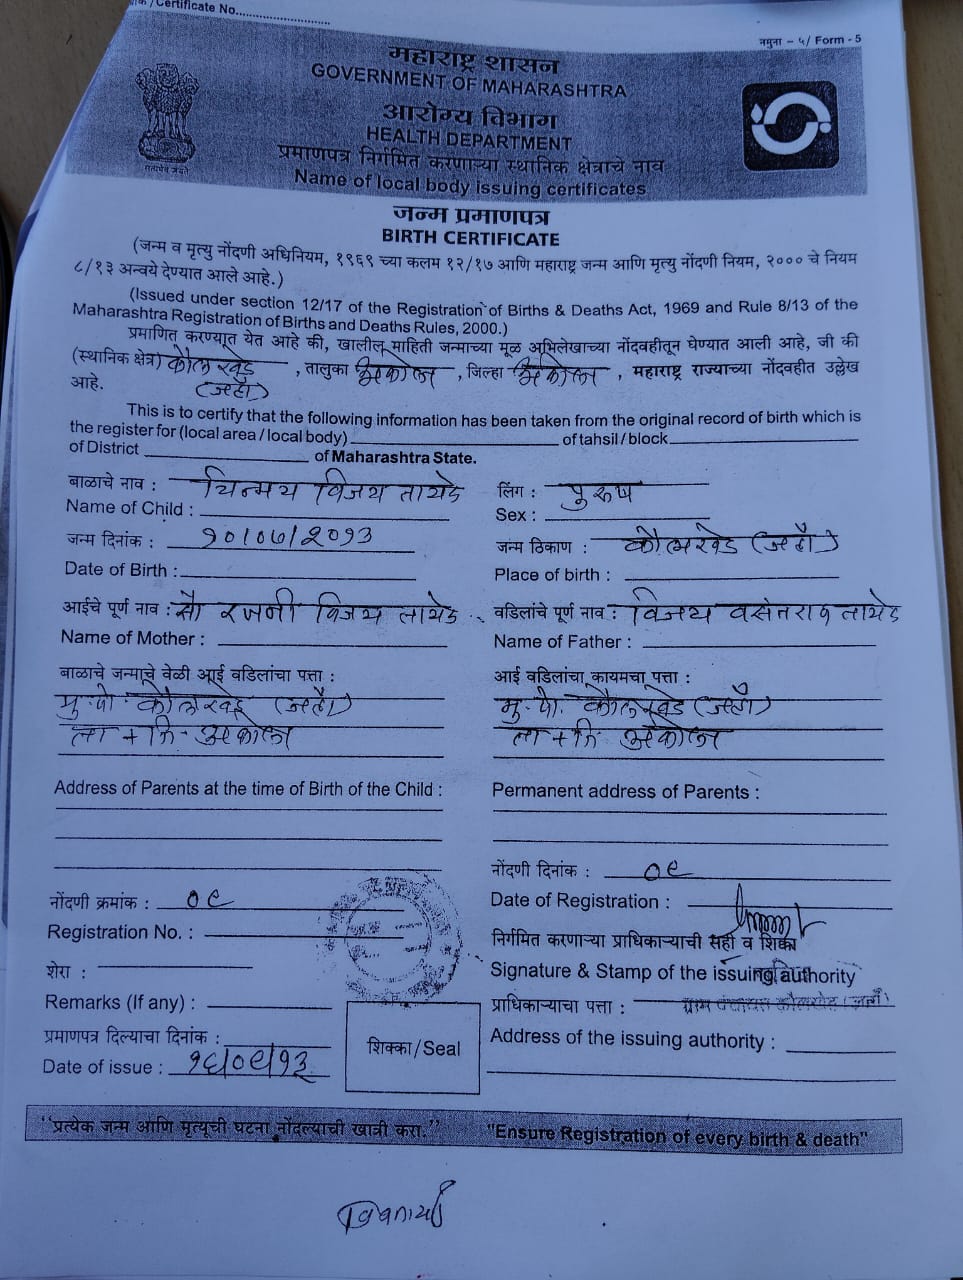 /Certificate No.
नमुना – ५/ Form - 5
महाराष्ट्र शासन
GOVERNMENT OF MAHARASHTRA
आरोग्य विभाग
HEALTH DEPARTMENT
प्रमाणपत्र निर्गमित करणाऱ्या स्थानिक क्षेत्राचे नाव
Name of local body issuing certificates
सत्यमेव जयते
जन्म प्रमाणपत्र
BIRTH CERTIFICATE
(जन्म व मृत्यु नोंदणी अधिनियम, १९६९ च्या कलम १२/१७ आणि महाराष्ट्र जन्म आणि मृत्यु नोंदणी नियम, २००० चे नियम
८/१३ अन्वये देण्यात आले आहे.)
(Issued under section 12/17 of the Registration of Births & Deaths Act, 1969 and Rule 8/13 of the
Maharashtra Registration of Births and Deaths Rules, 2000.)
प्रमाणित करण्यात येत आहे की, खालील माहिती जन्माच्या मूळ अभिलेखाच्या नोंदवहीतून घेण्यात आली आहे, जी की
(स्थानिक क्षेत्र) कौलखेड (जहाँ) , तालुका अकोला , जिल्हा अकोला , महाराष्ट्र राज्याच्या नोंदवहीत उल्लेख
आहे.
This is to certify that the following information has been taken from the original record of birth which is
the register for (local area / local body) of tahsil / block
of District of Maharashtra State.
बाळाचे नाव : चिन्मय विजय तायडे लिंग : पुरुष
Name of Child : Sex :
जन्म दिनांक : १०/०७/२०१३ जन्म ठिकाण : कौलखेड (जहाँ)
Date of Birth : Place of birth :
आईचे पूर्ण नाव : सौ रजनी विजय तायडे वडिलांचे पूर्ण नाव : विजय वसंतराव तायडे
Name of Mother : Name of Father :
बाळाचे जन्माचे वेळी आई वडिलांचा पत्ता : आई वडिलांचा कायमचा पत्ता :
मु.पो. कौलखेड (जहाँ) मु.पो. कौलखेड (जहाँ)
ता + जि - अकोला ता + जि अकोला
Address of Parents at the time of Birth of the Child : Permanent address of Parents :
नोंदणी दिनांक : ०९
नोंदणी क्रमांक : ०९ Date of Registration :
Registration No. : निर्गमित करणाऱ्या प्राधिकाऱ्याची सही व शिक्का
शेरा : Signature & Stamp of the issuing authority
Remarks (If any) : प्राधिकाऱ्याचा पत्ता : ग्राम पंचायत कौलखेड (जहाँ)
प्रमाणपत्र दिल्याचा दिनांक : शिक्का/Seal Address of the issuing authority :
Date of issue : १६/०९/१३
"प्रत्येक जन्म आणि मृत्यूची घटना नोंदल्याची खात्री करा." "Ensure Registration of every birth & death"